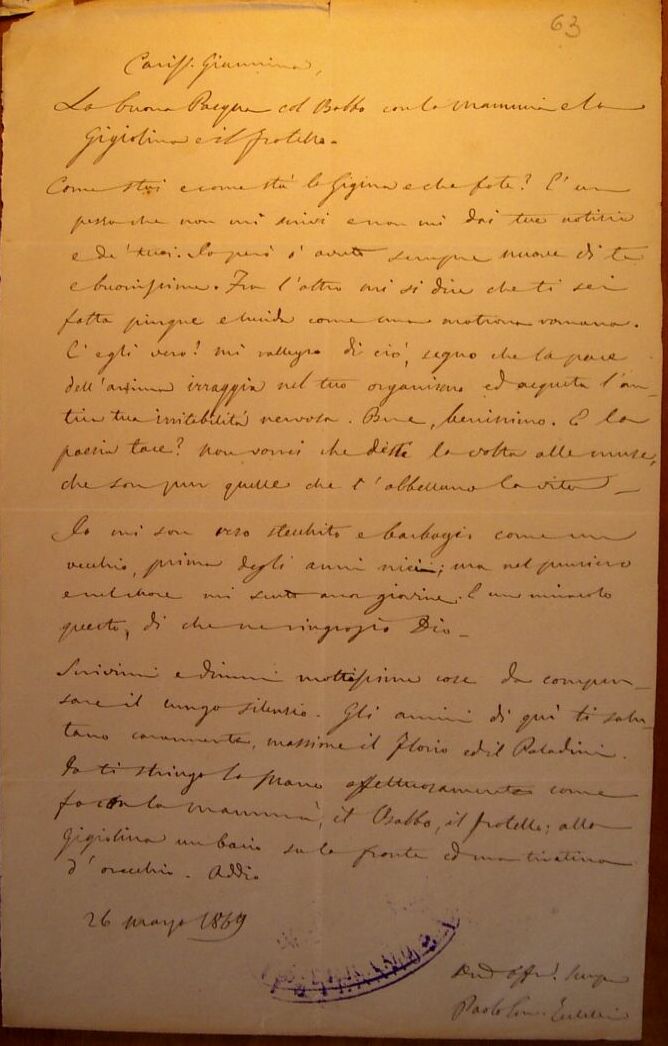 63
Cariss. Giannina,
La buona Pasqua col Babbo con la mamma e la
Gigiolina e il fratello.
Come stai e come sta la Gigina e che fate? È un
pezzo che non mi scrivi e non mi dai tue notizie
e de' tuoi. Io però ò avuto sempre nuove di te
e buonissime. Fra l'altro mi si dice che ti sei
fatta pingue e lucida come una matrona romana.
È egli vero? mi rallegro di ciò, segno che la pace
dell'anima irraggia nel tuo organismo ed acqueta l'an-
tica tua irritabilità nervosa. Bene, benissimo. E la
poesia tace? non vorrei che desti la volta alle muse,
che son pur quelle che t'abbellano la vita —
Io mi son reso stecchito e barbogio come un
vecchio, prima degli anni miei; ma nel pensiero
e nel cuore mi sento ancor giovine. È un miracolo
questo, di che ne ringrazio Dio —
Scrivimi e dimmi moltissime cose da compen-
sare il lungo silenzio. Gli amici di qui ti salu-
tano caramente, massime il Florio ed il Paladini.
Io ti stringo la mano affettuosamente come
fo con la mamma, il Babbo, il fratello; alla
Gigiolina un bacio su la fronte ed una tiratina
d'orecchio. Addio
26 marzo 1869
Paolo